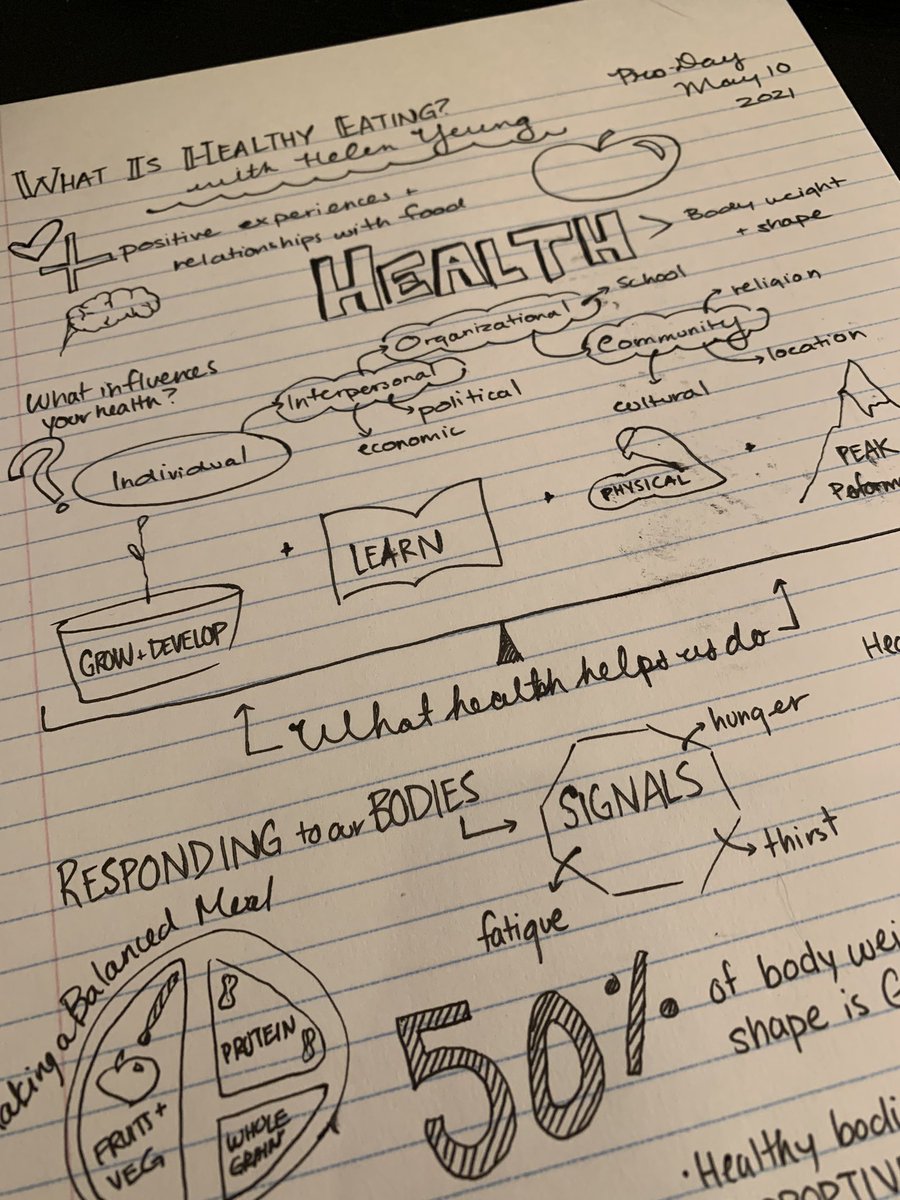 Pro-Day
May 10
2021
WHAT IS HEALTHY EATING?
with Helen Yeung
positive experiences +
relationships with food
HEALTH > Body weight
+ shape
What influences
your health?
Individual
Interpersonal
economic
political
Organizational
school
Community
religion
location
cultural
GROW + DEVELOP
+
LEARN
+
PHYSICAL
+
PEAK
Peform
What health helps us do
Hea
RESPONDING to our BODIES
SIGNALS
hunger
thirst
fatigue
aking a Balanced Meal
FRUITS +
VEG
PROTEIN
WHOLE
GRAIN
50% of body wei
shape is G
· Healthy bodi